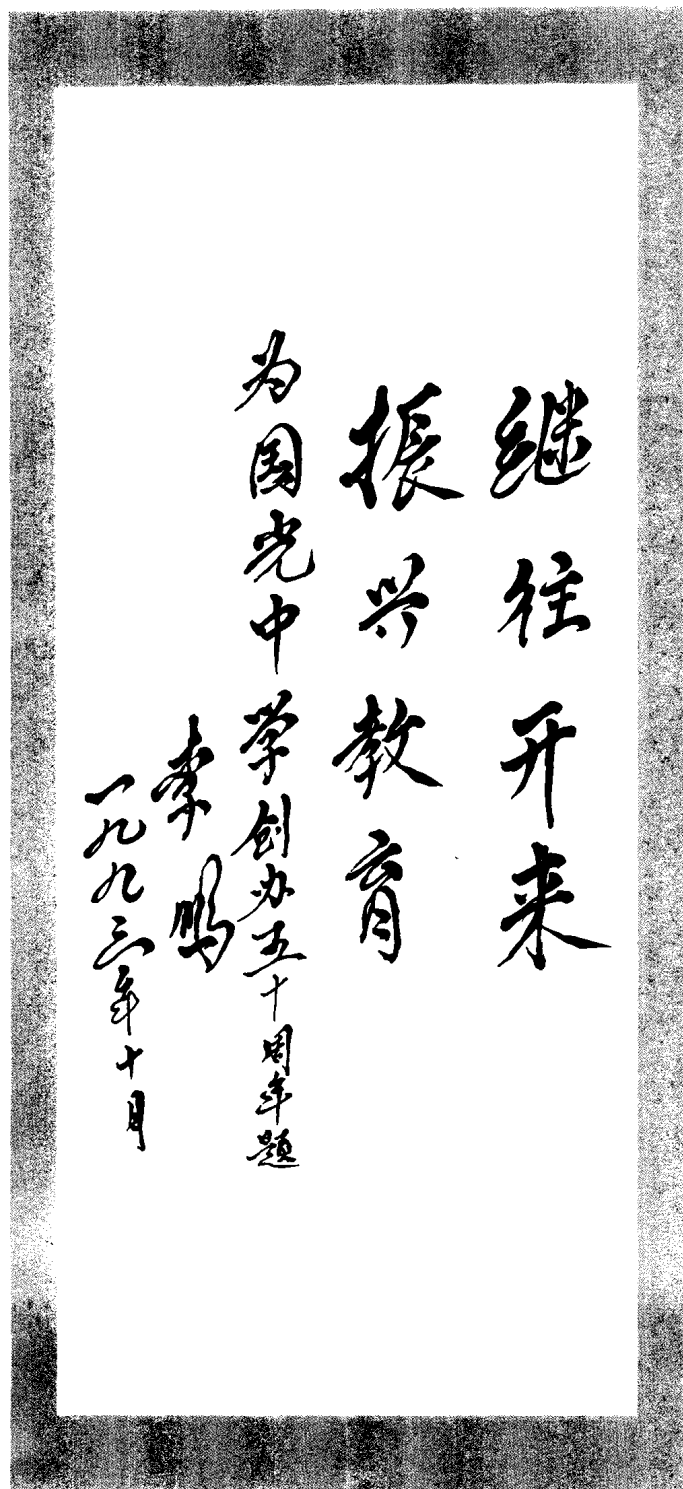 继往开来
振兴教育
为国光中学创办五十周年题
李鹏
一九九三年十月